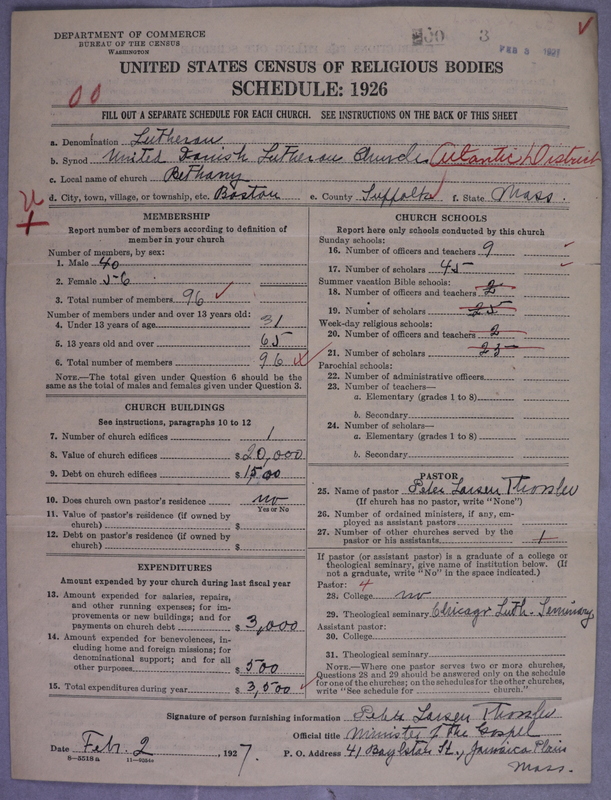 DEPARTMENT OF COMMERCE
BUREAU OF THE CENSUS
WASHINGTON
50 3
FEB 3 1927
UNITED STATES CENSUS OF RELIGIOUS BODIES
SCHEDULE: 1926
00
FILL OUT A SEPARATE SCHEDULE FOR EACH CHURCH. SEE INSTRUCTIONS ON THE BACK OF THIS SHEET
a. Denomination Lutheran
b. Synod United Danish Lutheran Church Atlantic District
c. Local name of church Bethany
d. City, town, village, or township, etc. Boston e. County Suffolk f. State Mass.
MEMBERSHIP
Report number of members according to definition of
member in your church
Number of members, by sex:
1. Male 40
2. Female 56
3. Total number of members 96
Number of members under and over 13 years old:
4. Under 13 years of age 31
5. 13 years old and over 65
6. Total number of members 96
NOTE.—The total given under Question 6 should be the
same as the total of males and females given under Question 3.
CHURCH BUILDINGS
See instructions, paragraphs 10 to 12
7. Number of church edifices 1
8. Value of church edifices $ 20,000
9. Debt on church edifices $ 1500
10. Does church own pastor's residence no
Yes or No
11. Value of pastor's residence (if owned by
church) $
12. Debt on pastor's residence (if owned by
church) $
EXPENDITURES
Amount expended by your church during last fiscal year
13. Amount expended for salaries, repairs,
and other running expenses; for im-
provements or new buildings; and for
payments on church debt $ 3,000
14. Amount expended for benevolences, in-
cluding home and foreign missions; for
denominational support; and for all
other purposes $ 500
15. Total expenditures during year $ 3,500
CHURCH SCHOOLS
Report here only schools conducted by this church
Sunday schools:
16. Number of officers and teachers 9
17. Number of scholars 45
Summer vacation Bible schools:
18. Number of officers and teachers 2
19. Number of scholars 25
Week-day religious schools:
20. Number of officers and teachers 2
21. Number of scholars 25
Parochial schools:
22. Number of administrative officers
23. Number of teachers—
a. Elementary (grades 1 to 8)
b. Secondary
24. Number of scholars—
a. Elementary (grades 1 to 8)
b. Secondary
PASTOR
25. Name of pastor Peter Larsen
(If church has no pastor, write "None")
26. Number of ordained ministers, if any, em-
ployed as assistant pastors
27. Number of other churches served by the
pastor or his assistants 1
If pastor (or assistant pastor) is a graduate of a college or
theological seminary, give name of institution below. (If
not a graduate, write "No" in the space indicated.)
Pastor: 4
28. College no
29. Theological seminary Chicago Luth. Seminary
Assistant pastor:
30. College
31. Theological seminary
NOTE.—Where one pastor serves two or more churches,
Questions 28 and 29 should be answered only on the schedule
for one of the churches; on the schedules for the other churches,
write "See schedule for church."
Signature of person furnishing information Peter Larsen
Official title Minister of the Gospel
Date Feb. 2, 1927. P. O. Address 41 Boylston St., Jamaica Plain
8—5518a 11—9034
Mass.